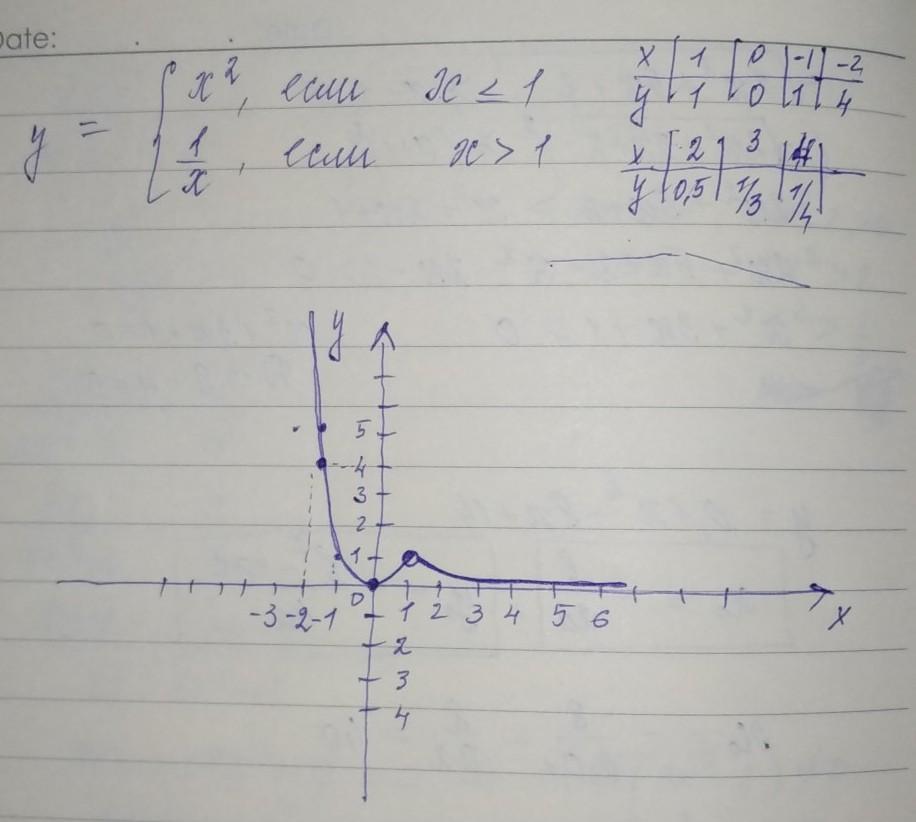 Date:
y = { x², если x ≤ 1
1/x, если x > 1
x | 1 | 0 | -1 | -2
y | 1 | 0 | 1 | 4
x | 2 | 3 | 4
y | 0,5 | 1/3 | 1/4
y
5
4
3
2
1
-3 -2 -1 0 1 2 3 4 5 6 x
2
3
4